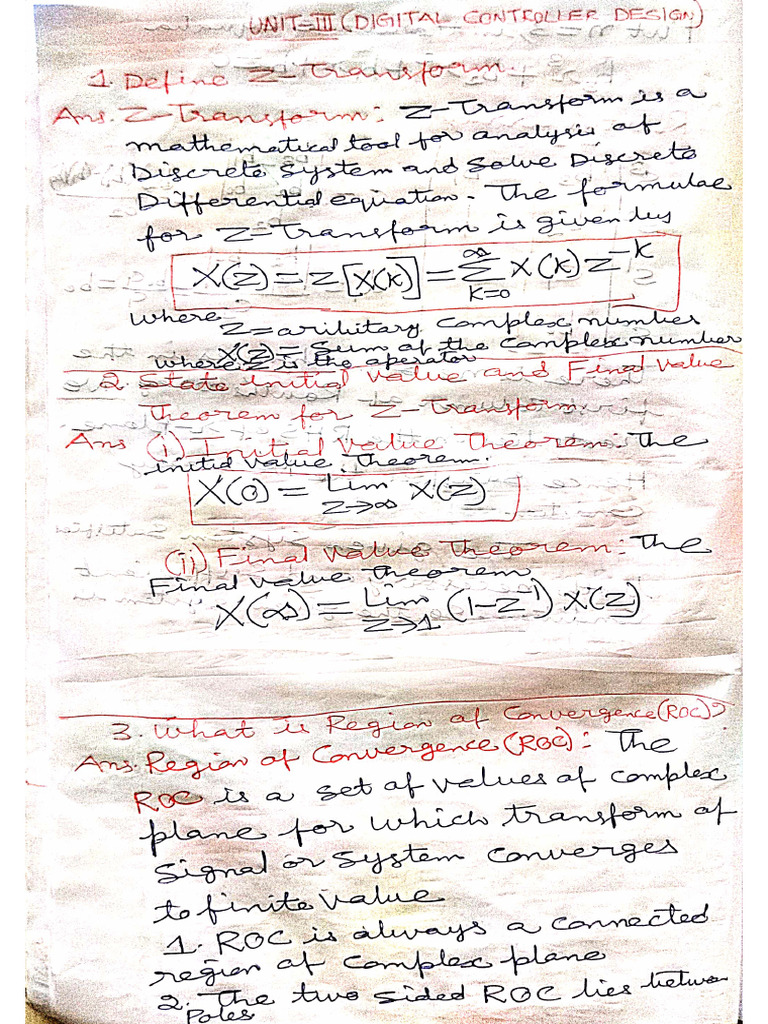 UNIT-III (DIGITAL CONTROLLER DESIGN)
1. Define Z-Transform.
Ans. Z-Transform: Z-Transform is a
mathematical tool for analysis of
Discrete System and Solve Discrete
Differential equation. The formulae
for Z-Transform is given by
X(Z) = Z[X(k)] = ∞∑k=0 X(k) Z^-k
where
Z = aribitary complex number
X(z) = Sum of the complex number
where Z is the operator
2. State initial value and Final value
Theorem for Z-Transform.
Ans (i) Initial Value Theorem: The
initial value Theorem.
X(0) = Lim Z→∞ X(Z)
(ii) Final Value Theorem: The
Final value theorem
X(∞) = Lim Z→1 (1-Z^-1) X(Z)
3. What is Region of Convergence (ROC)?
Ans. Region of Convergence (ROC): The
ROC is a set of values of complex
plane for which transform of
Signal or System converges
to finite value
1. ROC is always a connected
region of complex plane
2. The two sided ROC lies betwen
Poles